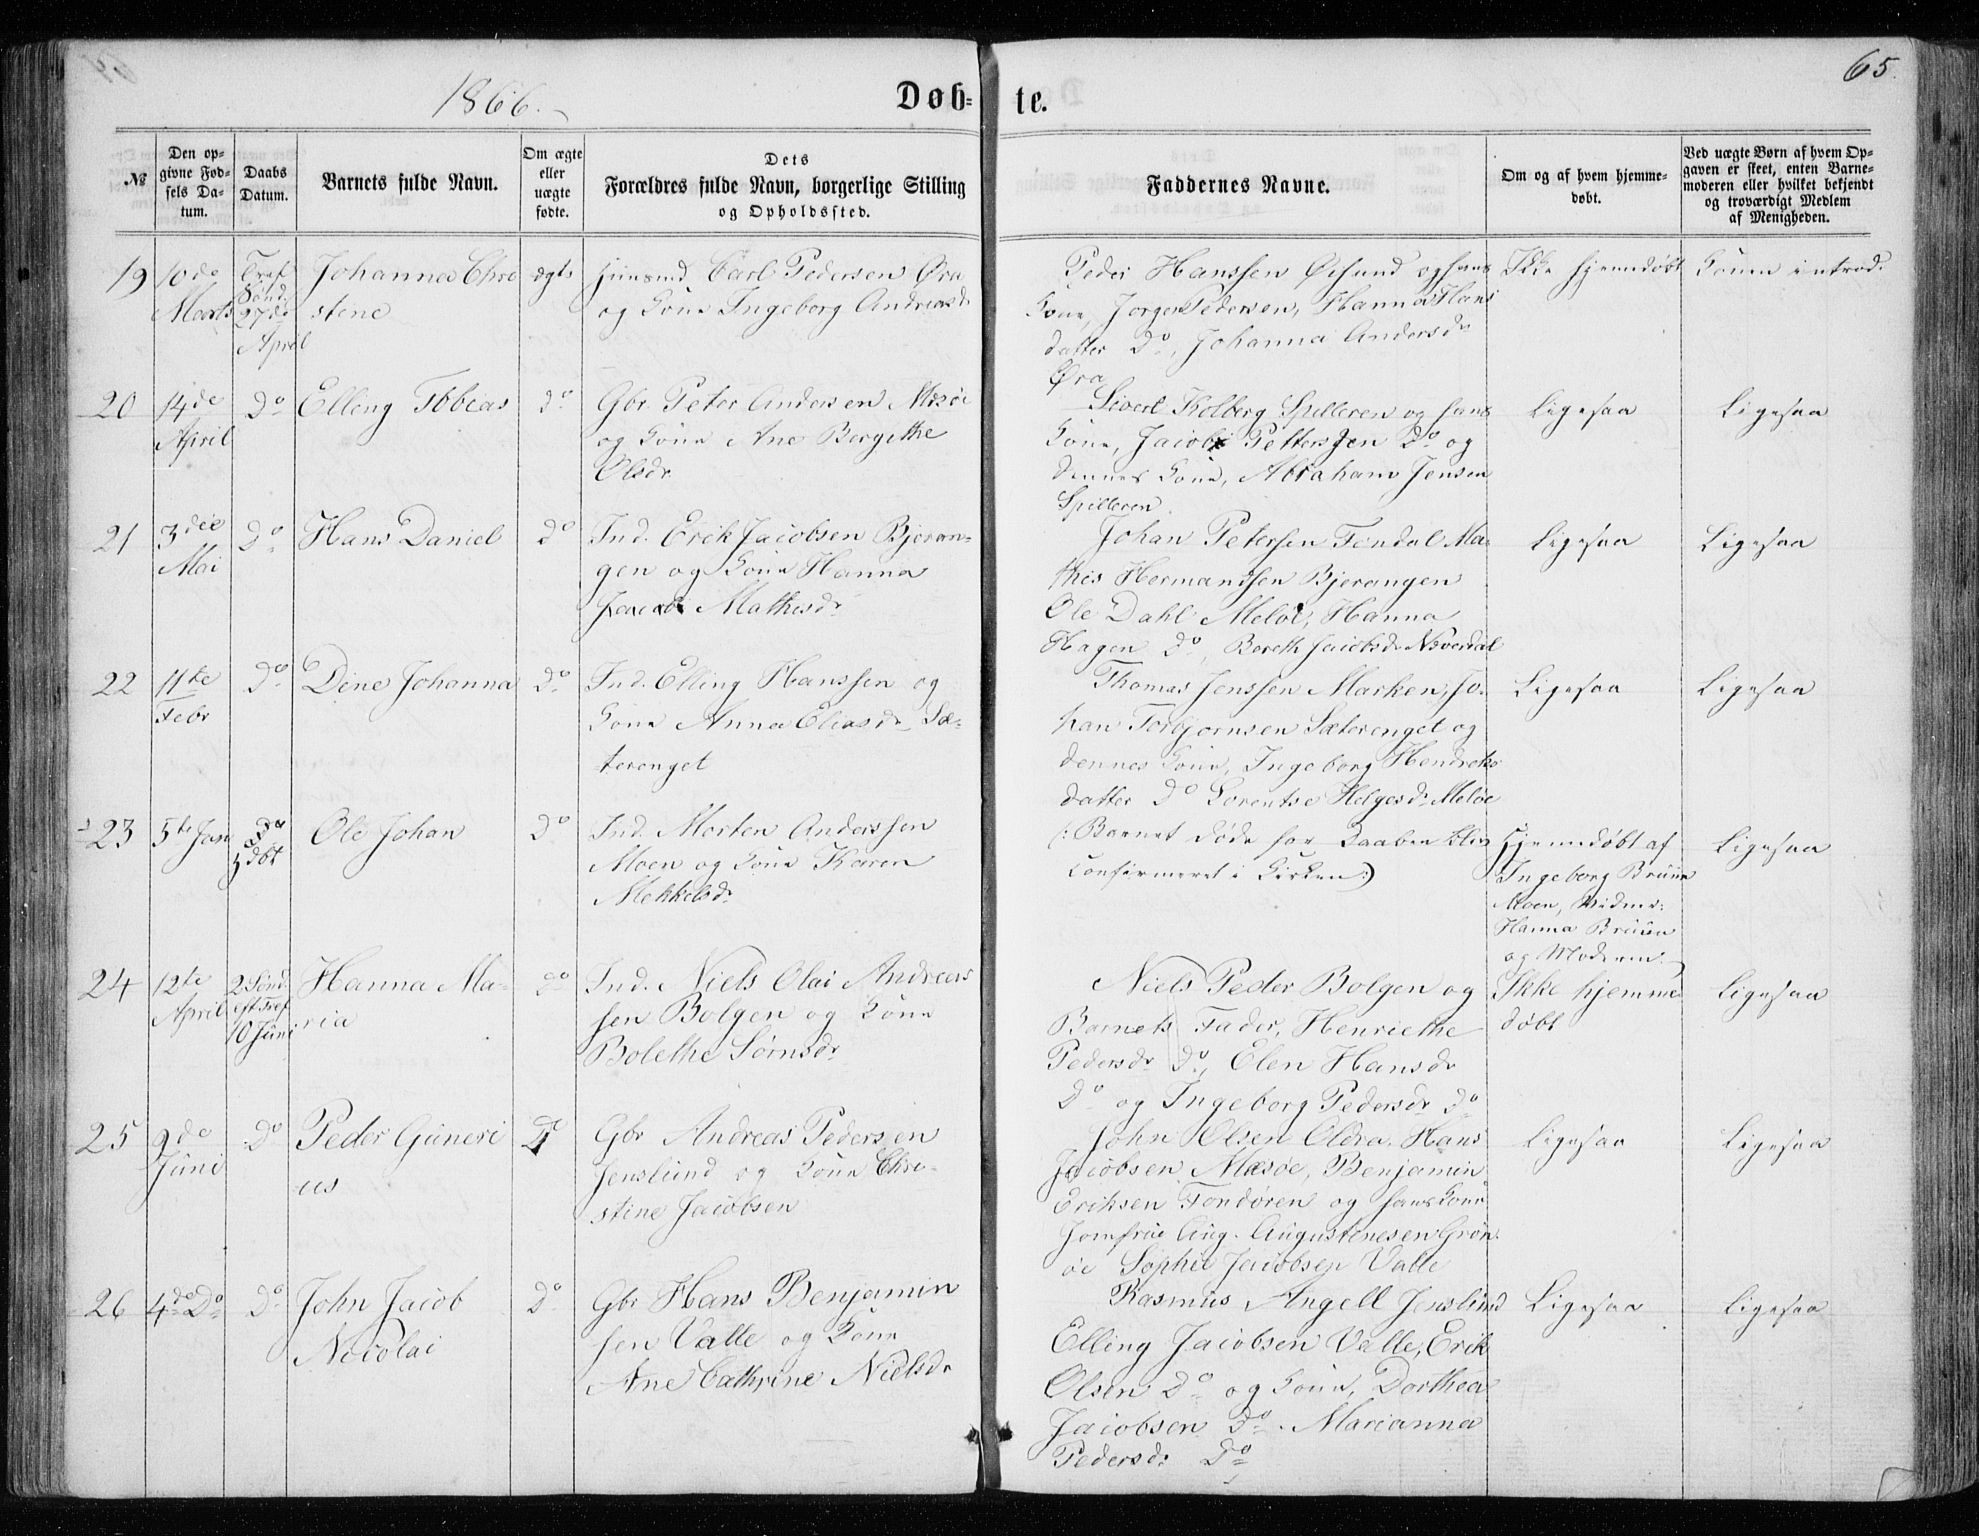 1866.
Døb-
te.
65.
№
Den op-
givne Fød-
sels Da-
tum.
Daabs
Datum.
Barnets fulde Navn.
Om ægte
eller
uægte
fødte.
Dets
Forældres fulde Navn, borgerlige Stilling
og Opholdssted.
Faddernes Navne.
Om og af hvem hjemme-
døbt.
Ved uægte Børn af hvem Op-
gaven er skeet, enten Barne-
moderen eller hvilket bekjendt
og troværdigt Medlem
af Menigheden.
19
10de
Marts
Tref
Sønd.
27de
April
Johannes Chri
stine
ægte
Huusmd Carl Pedersen Øra
og Kone Ingeborg Andreasdr
Peder Hanssen Øysund og hans
Kone, Jørgen Pedersen, Hanna Hans
datter Do, Johanna Andersdr
Øra
Ikke hjemmdøbt
Konen introd.
20
14de
April
Do
Elling Tobias
Do
Gbr. Peter Andersen Mesøe
og Kone Ane Bergithe
Olsdr
Sivert Kolberg Spilleren og hans
Kone, Jacob Petterssen Do og
dennes Kone, Abraham Jensen
Spilleren.
Ligesaa
Ligesaa
21
3die
Mai
Do
Hans Daniel
Do
Ind. Erik Jacobsen Bjeran-
gen og Kone Hanna
Jacobi Mathisdr
Johan Petersen Fondal Ma-
this Hermandsen Bjerangen
Ole Dahl Meløe, Hanna
Hagen Do, Bereth Jacobsdr Nsverdal
Ligesaa
Ligesaa
22
11te
Febr
Do
Dine Johanna
Do
Ind. Elling Hanssen og
Kone Anna Eliasdr Sæ-
terenget
Thomas Jenssen Marken, Jo-
han Torbjørnsen Sæterenget og
dennes Kone, Ingeborg Hendriks
datter Do Lorentse Helgesdr Meløe
Ligesaa
Ligesaa
23
5te Jan
Do
Hdbt
Ole Johan
Do
Ind. Morten Anderssen
Moen og Kone Karen
Mekkelsdr
(: Barnet døde før Daaben blev
Confirmeret i Kirken:)
Hjemmdøbt af
Ingeborg Bruun
Moen, Vidner:
Hanna Bruun
og Moderen.
Ligesaa
24
12te
April
2 Sønd
eft Tref
10 Juni
Hanna Ma-
ria
Do
Ind. Niels Olai Andreas
sen Bolgen og Kone
Bolethe Sørnsdr
Niels Peder Bolgen og
Barnets Fader, Henriethe
Pedersdr Do, Elen Hansdr
Do og Ingeborg Pedersdr Do
Ikke hjemme
døbt
Ligesaa
25
9de
Juni
Do
Peder Guneri
us
Do
Gbr Andreas Pedersen
Jenslund og Kone Chri-
stine Jacobsen
John Olsen Oldra, Hans
Jacobsen Mæsøe, Benjamin
Eriksen Fondøren og hans Kone
Jomfrue Aug. Augustinesen Grøn-
øe Sophie Jacobsen Valle
Ligesaa
Ligesaa
26
4de Do
Do
John Jacob
Nicolai
Do
Gbr Hans Benjamin
sen Valle og Kone
Ane Cathrine Nielsdr
Rasmus Angell Jenslund
Elling Jacobsen Valle, Erik
Olsen Do og Kone, Dorthea
Jacobsen Do. Marianna
Pedersdr Do
Ligesaa
Ligesaa